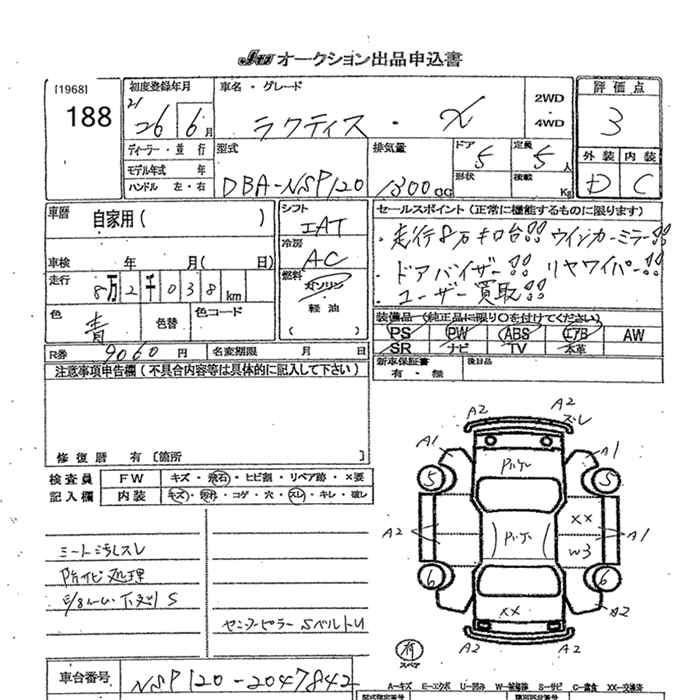 JU オークション出品申込書
[1968]
188
初度登録年月
21
26 6月
車名・グレード
ラクティス・X
2WD
・
4WD
評価点
3
外装 内装
D C
ディーラー・並行
モデル年式 年
ハンドル 左・右
型式
DBA-NSP120
排気量
1300CC
ドア
5
定員
5人
形状
積載
Kg
車歴
自家用( )
車検 年 月( 日)
走行
8万2千038km
色
青
色替
色コード
シフト
IAT
冷房
AC
燃料
ガソリン
軽油
( )
セールスポイント(正常に機能するものに限ります)
・走行8万キロ台!! ウインカーミラー!!
・ドアバイザー!! リヤワイパー!!
・ユーザー買取!!
装備品(純正品に限り○を付けてください)
PS PW ABS エアB AW
SR ナビ TV 本革
新車保証書
有・無
後日品
R券 9060円 名変期限 月 日
注意事項申告欄(不具合内容等は具体的に記入して下さい)
修復歴 有〔箇所 〕
検査員
記入欄
FW キズ・飛石・ヒビ割・リペア跡・×要
内装 キズ・汚れ・コゲ・穴・スレ・キレ・破レ
シート汚レスレ
防サビ処理
下廻りS
センターピラーSベルトU
A2
A2
ズレ
A1
A1
Pパケル
5
5
A2
Pパケ
XX
A1
W3
6
6
XX
A2
A2
A2
有
スペア
車台番号 NSP120-2047842
A-キズ E-エクボ U-凹み W-補修跡 S-サビ C-腐食 XX-交換済